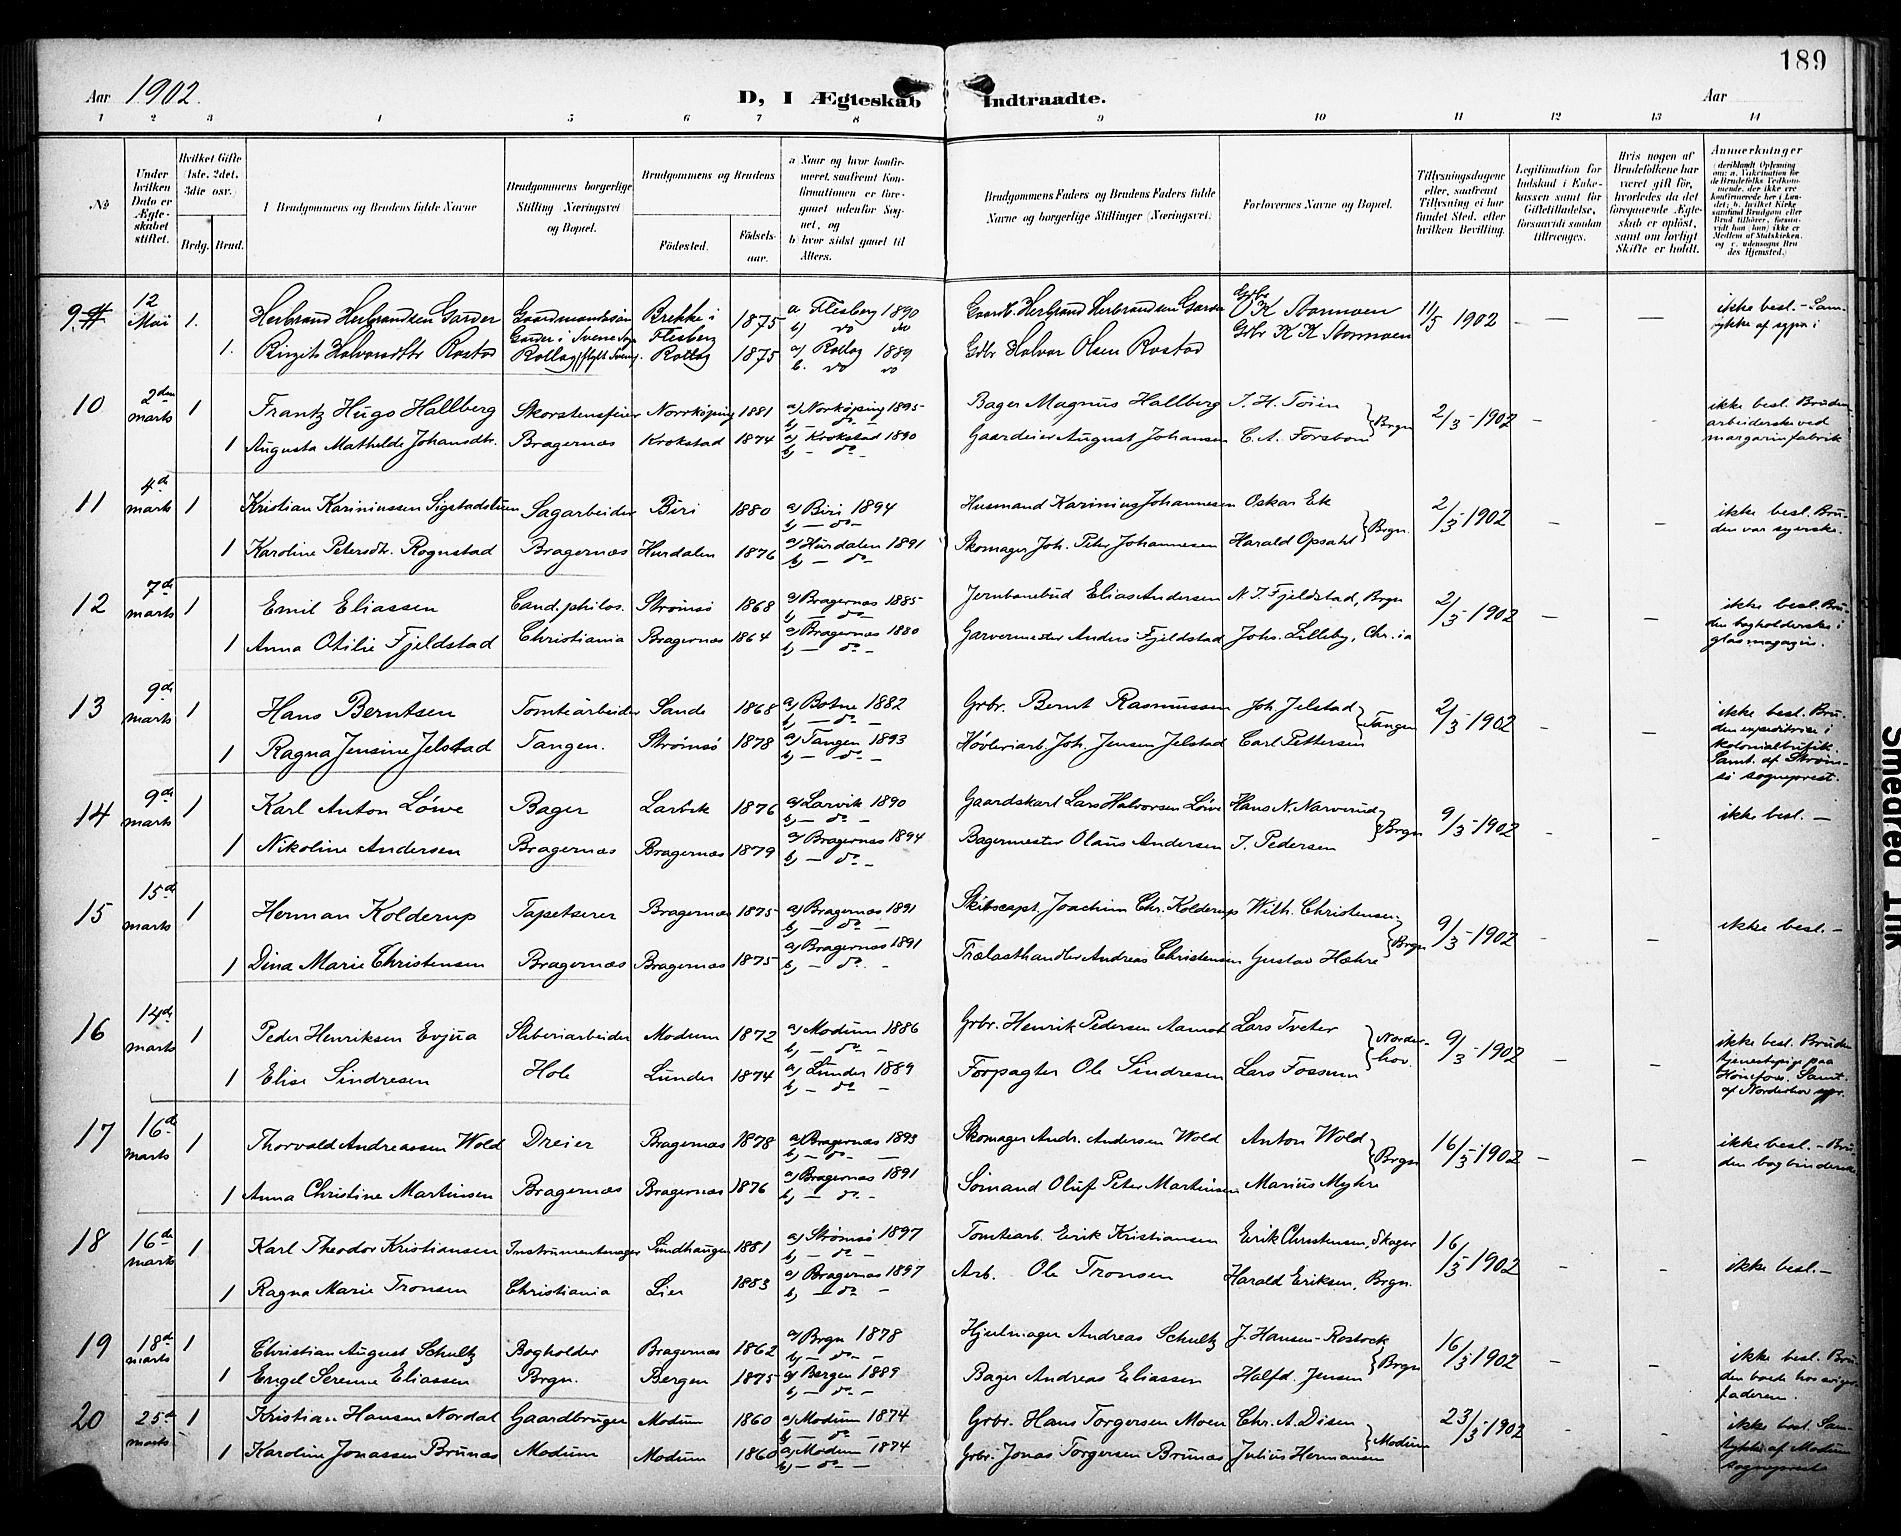 189
Aar 1902.
D, I Ægteskab Indtraadte.
Aar
1 2 3 4 5 6 7 8 9 10 11 12 13 14
No
Under hvilken Dato er Ægteskabet stiftet.
Hvilket Gifte (1ste, 2det, 3die osv.)
Brdg. Brud.
Brudgommens og Brudens fulde Navne
Brudgommens borgerlige Stilling (Næringsvei) og Bopæl.
Brudgommens og Brudens
Fødested.
Fødselsaar.
a Naar og hvor konfirmeret, saafremt Konfirmationen er foregaaet udenfor Sognet, og
b hvor sidst gaaet til Alters.
Brudgommens Faders og Brudens Faders fulde Navne og borgerlige Stillinger (Næringsvei.)
Forlovernes Navne og Bopæl.
Tillysningsdagene eller, saafremt Tillysning ei har fundet Sted, efter hvilken Bevilling.
Legitimation for Indskud i Enkekassen samt for Giftetilladelse, forsaavidt saadan tiltrænges.
Hvis nogen af Brudefolkene har været gift før, hvorledes da det foregaaende Ægteskab er opløst, samt om lovligt Skifte er holdt.
Anmærkninger
9 12 Mai 1. Herbrand Herbrandsen Garder Gaardmandssøn Brekke i Flesberg 1875 a Flesberg 1890 b) do do Gaardb. Herbrand Herbrandsen Garder O K Stormoen 11/5 1902 — — ikke besl. - Sam-
1. Birgit Halvorsdtr Rostad Rollag Rollag 1875 a) Rollag 1889 b. do do Gdbr Halvor Olsen Rostad Grbr K K Stormoen
10 2den marts 1 Frantz Hugo Hallberg Skorstensfeier Norrkøping 1881 a) Norkøping 1895 b) — do — Bager Magnus Hallberg J. H. Toien Brgn 2/3 - 1902 - - ikke besl. Bruden
1 Augusta Mathilde Johansdtr. Bragernæs Krokstad 1874 a) Krokstad 1890 b) — do Gaardeier August Johansen C. A. Forsbom arbeiderske ved margarinfabrik
11 4de marts 1 Kristian Kariniussen Sigstadstuen Sagarbeider Biri 1880 a) Biri 1894 b) — do — Husmand Karinius Johannesen Oskar Ek Brgn. 2/3 - 1902 - - ikke besl. Bru-
1 Karoline Petersdtr. Rognstad Bragernæs Hurdalen 1876 a) Hurdalen 1891 b) — do Skomager Joh. Peter Johannesen Harald Opsahl den var syerske.
12 7de marts 1 Emil Eliassen Cand. philos. Strømsø 1868 a) Bragernæs 1885 b) — do — Jernbanebud Elias Andersen N. J. Fjeldstad, Brgn 2/3 - 1902 — — ikke besl. Bru-
1 Anna Otilie Fjeldstad Christiania Bragernæs 1864 a) Bragernæs 1880 b) — do — Garvermester Anders Fjeldstad Johs. Lilleby, Chr.ia den bogholderske i glasmagazin.
13 9de marts 1 Hans Berntsen Tomtearbeider Sande 1868 a) Botne 1882 b) — do — Grbr. Bernt Rasmussen Joh. Jelstad Tangen 2/3 - 1902 - - ikke besl. Bru-
1 Ragna Jensine Jelstad Tangen. Strømsø 1878 a) Tangen 1893 b) — do — Høvleriarb. Joh. Jensen Jelstad Carl Pettersen den expeditrice i kolonialbutik. Samt. af Strøm- sø sogneprest.
14 9de marts 1 Karl Anton Löwe Bager Larvik 1876 a) Larvik 1890 b) — do — Gaardskarl Lars Halvorsen Löwe Hans N. Narverud Brgn 9/3 - 1902 - - ikke besl. —
1 Nikoline Andersen Bragernæs Bragernæs 1879 a) Bragernæs 1894 b) — do — Bagermester Olaus Andersen J. Pedersen
15 15de marts 1 Herman Kolderup Tapetserer Bragernæs 1875 a) Bragernæs 1891 b) — do — Skibscapt. Joachim Chr. Kolderup Wilh. Christensen Brgn 9/3 - 1902 - - ikke besl. —
1 Dina Marie Christensen Bragernæs Bragernæs 1875 a) Bragernæs 1891 b) — do. - Trælasthandler Andreas Christensen Gustav Hæhre
16 14de marts 1 Peder Henriksen Evjua Sliberiarbeider Modum 1872 a) Modum 1886 b) — do — Grbr. Henrik Pedersen Aamot Lars Tveter Norder- hov. 9/3 - 1902 - - ikke besl. Bruden
1 Elise Sindresen Hole Lunder 1874 a) Lunder 1889 b) — do — Forpagter Ole Sindresen Lars Fossum tjenestepige paa Hønefos. Samt. af Norderhov spr.
17 16de marts 1 Thorvald Andreassen Wold Dreier Bragernæs 1878 a) Bragernæs 1893 b) — do — Skomager Andr. Andersen Wold Anton Wold Brgn 16/3 - 1902 - - ikke besl. - Bru-
1 Anna Christine Martinsen Bragernæs Bragernæs 1876 a) Bragernæs 1891 b) — do — Sømand Oluf Peter Martinsen Marius Myhre den bogbinderske
18 16de marts 1 Karl Theodor Kristiansen Instrumentmager Sundhaugen 1881 a) Strømsø 1897 b) — do — Tomtearb. Erik Kristiansen Erik Christensen, Skoger 16/3 - 1902 - - ikke besl. —
1 Ragna Marie Tronsen Christiania Lier 1883 a) Bragernæs 1897 b) — do — Arb. Ole Tronsen Harald Eriksen, Brgn.
19 18de marts 1 Christian August Schultz Bogholder Bragernæs 1862 a) Brgn 1878 b) — do — Hjulmager Andreas Schultz J. Hansen-Rostock Brgn 16/3 1902 - - ikke besl. Bru-
1 Engel Serenne Eliassen Brgn. Bergen 1875 a) Bergen 1889 b) — do — Bager Andreas Eliassen Halfd. Jensen faderen.
20 25de marts 1 Kristian Hansen Nordal Gaardbruger Modum 1860 a) Modum 1874 b) — do — Grbr. Hans Torgersen Moen Chr. A. Disen Modum 23/3 - 1902 - - ikke besl. Sam-
1 Karoline Jonassen Brunæs Modum Modum 1860 a) Modum 1874 b) — do — Grbr. Jonas Torgersen Brunæs Julius Hermansen tykke af Modum sogneprest
Smedrød Trk